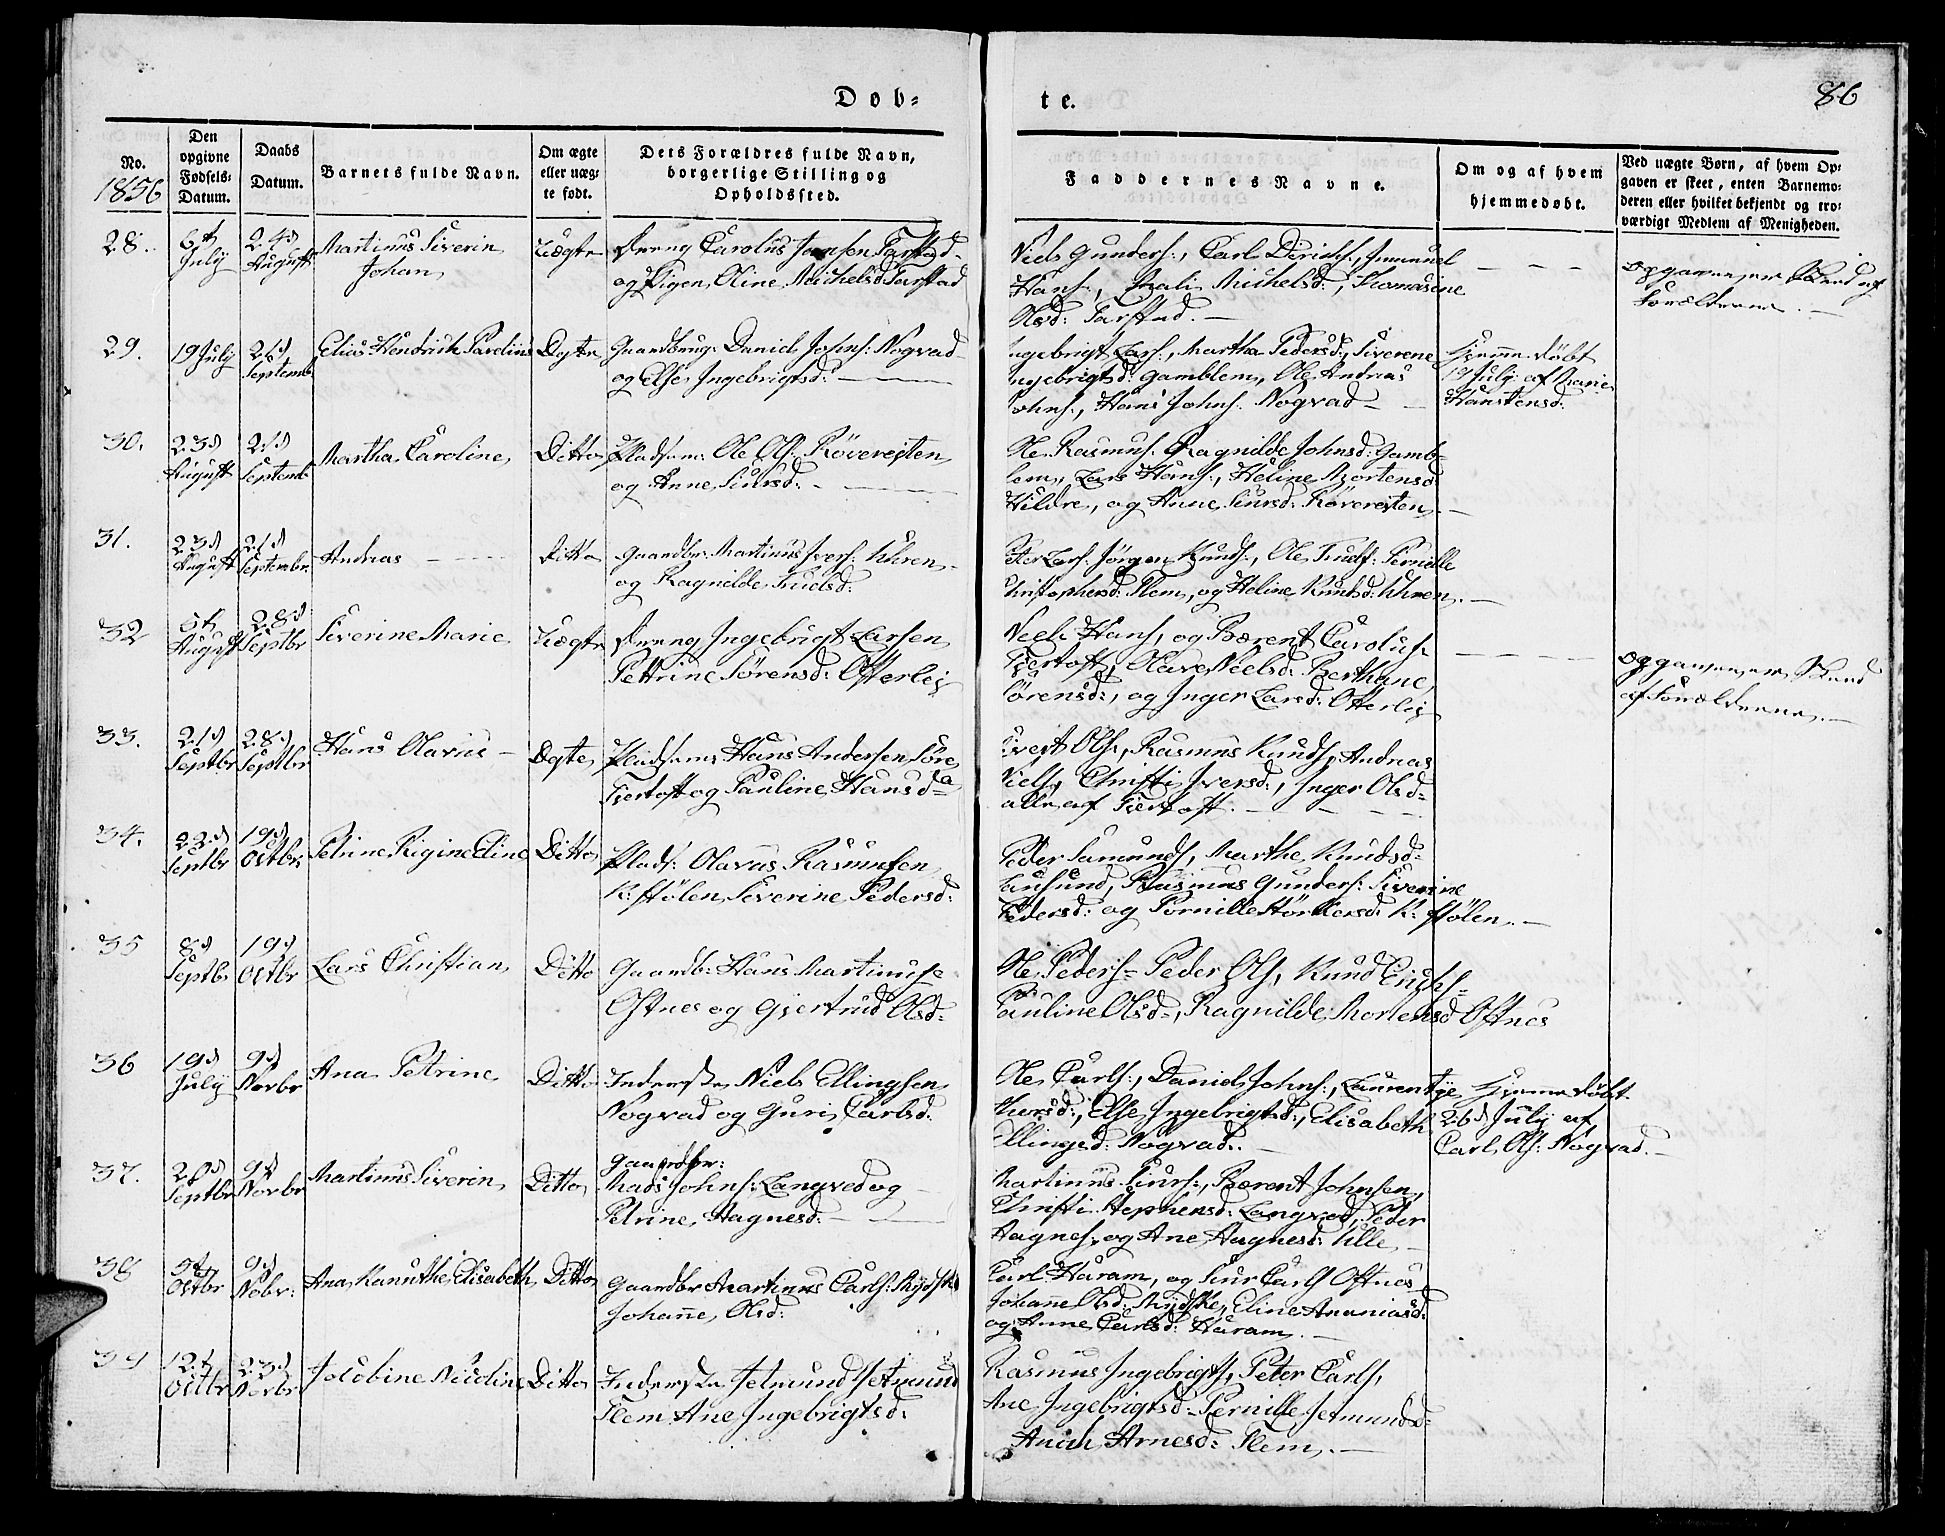 Døb-
te.
86
No.
1856
Den
opgivne
Fødsels-
Datum.
Daabs
Datum.
Barnets fulde Navn.
Om ægte
eller uæg-
te født.
Dets Forældres fulde Navn,
borgerlige Stilling og
Opholdssted.
Faddernes Navne.
Om og af hvem
hjemmedøbt.
Ved uægte Børn, af hvem Op-
gaven er skeet, enten Barnemo-
deren eller hvilket bekjendt og tro-
værdigt Medlem af Menigheden.
28.
6t
July
24d
August
Martinus Siverin
Johan
Uægte
Dreng Carolus Jansen Tarstad
og Pigen Oline Michelsd Tarstad
Niels Gunders:, Carl Dirichs:, Immanuel
Hans:, Mali Michelsd:, Thomasine
Olsd: Tarstad. —
Opgaven er skeed af
Forældrene. —
29.
19 July
21d
Septemb.
Elias Hendrich Parelius
Ægte
Gaardbrug: Daniel Johns: Nogvad
og Else Ingebrigtsd: —
Ingebrigt Lars:, Martha Pedersd:, Siverene
Ingebrigtsd: Gamblem, Ole Andreas
Johns:, Hans Johns: Nogvad —
Hjemmedøbt
19 July af Marie
Hanstensd:
30.
23d
August
21d
Septemb
Martha Caroline
Ditto
Pladsm: Ole Ols: Røverejten
og Anne Siursd: —
Ole Rasmus: Ragnilde Johnsd: Gamb-
lem, Lars Hans:, Heline Mortensd
Hildre, og Anne Siursd: Røverejten —
31.
23d
August
21d
Septembr.
Andreas —
Ditto
Gaardbr: Martinus Ivers: Uhren
og Ragnilde Truelsd:
Peter Lars: Jørgen Knuds:, Ole Truels: Pernille
Christophersd: Flem, og Heline Knudsd: Uhren. —
32
5t
August
28d
Septbr
Siverine Marie
Uægte
Dreng Ingebrigt Larsen
Pettrine Sørensd: Otterlej
Niels Hans, og Bærent Carolus:
Fjertoft, Olave Nielsd: Berthane
Sørensd:, og Inger Larsd: Otterlej
Opgaven er skeed
af Forældrene. —
33.
21d
Septbr
28d
Septbr
Hans Olavus —
Ægte
Pladsm: Hans Andersen Søre
Fjertoft og Pauline Hansd:
Sivert Ols:, Rasmus Knuds, Andreas
Niels, Christi Iversd:, Inger Olsd:
alle af Fjertoft. —
34.
22d
Septbr
19d
Octbr.
Petrine Rigine Eline
Ditto
Plads: Olavus Rasmusen
K: stølen, Siverine Pedersd:
Peder Samunds, Marthe Knudsd:
Lausund, Rasmus Gunders: Siverine
Pedersd: og Pernille Størkersd: K: stølen. —
35
8d
Septbr
19d
Octbr
Lars Christian
Ditto
Gaardb: Hans Martinus:
Oftnes og Gjertrud Olsd:
Ole Peders: Peder Ols, Knud Erichs:
Pauline Olsd:, Ragnilde Mortensd Oftnes
36
19d
July
9d
Novbr
Ana Petrine
Ditto
Inderste Niels Ellingsen
Nogvad og Guri Carlsd:
Ole Carls:, Daniel Johns:, Laurentze
Iversd:, Else Ingebrigtsd:, Elisabeth
Ellingsd: Nogvad. —
Hjemmedøbt
26d July af
Carl Ols: Nogvad. —
37.
20d
Septbr
9d
Novbr
Martinus Siverin
Ditto
Gaardbr:
Mads Johns: Langved og
Petrine Hagnesd: —
Martinus Siurs:, Bærent Johnsen,
Christi Stephensd: Langved, Peder
Hagnes, og Ane Hagnesd: Ulle —
38
5t
Octbr
9d
Nobr:
Ana Kanuthe Elisabeth
Ditto
Gaardbr Martinus Carls: Mydske
Johanne Olsd:
Carl Haram, og Siur Carls Oftnes
Johanne Olsd: Mydske, Eline Ananiasd:
og Anne Carlsd: Haram. —
39
12t
Octbr
23d
Novbr
Jacobine Nicoline
Ditto
Inderste Jetmund Jetmund
Flem Ane Ingebrigtsd:
Rasmus Ingebrigts, Peter Carls,
Ane Ingebrigtsd: Pernille Jetmundsd:
Anich Arnesd: Flem. —